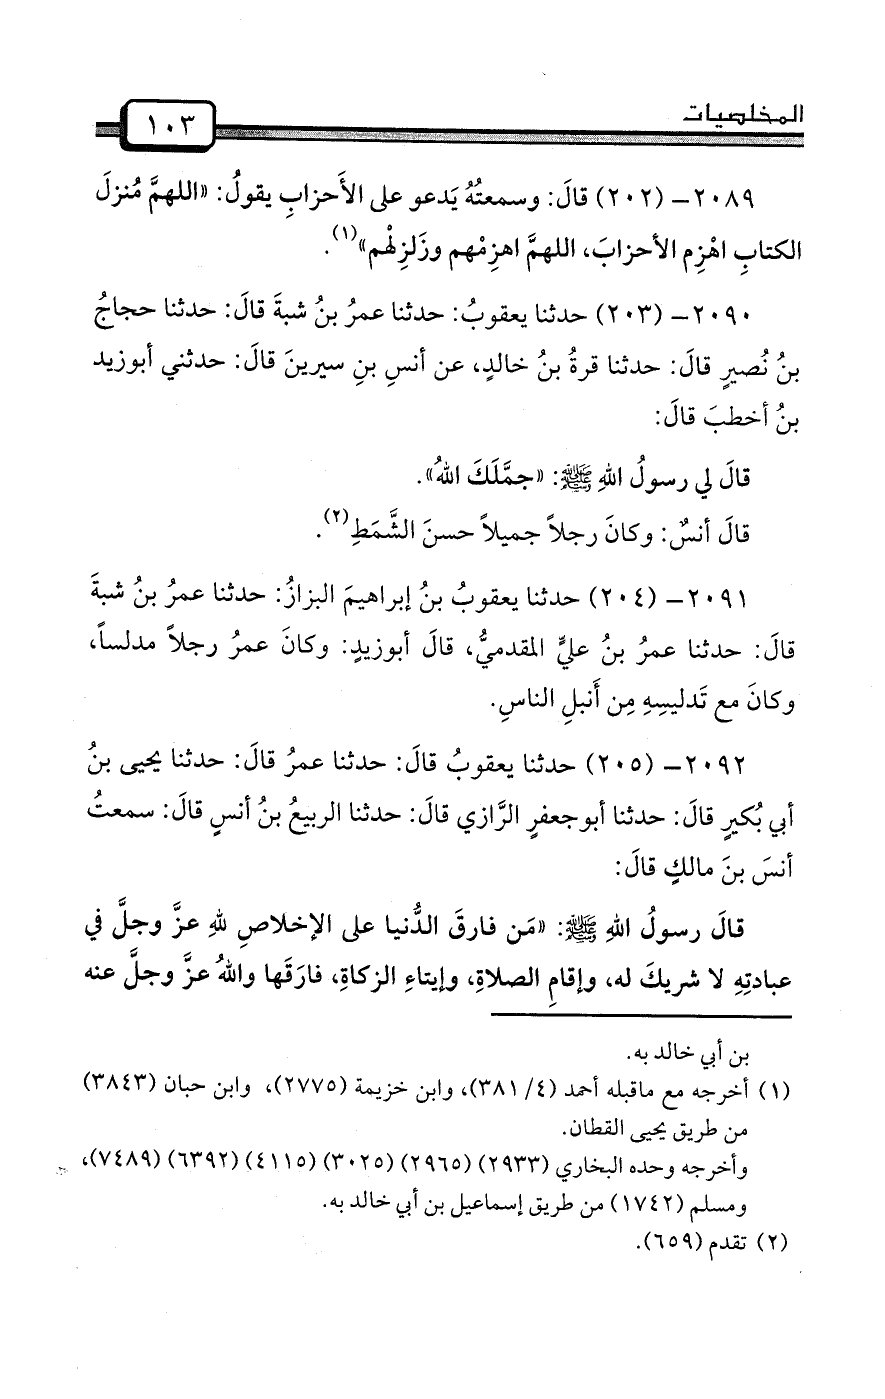 المخلصيات
١٠٣
٢٠٨٩- (٢٠٢) قالَ: وسمعتُهُ يَدعو على الأَحزابِ يقولُ: «اللهمَّ مُنزلَ
الكتابِ اهْزِم الأحزابَ، اللهمَّ اهزِمْهم وزَلزِلْهم»(١).
٢٠٩٠- (٢٠٣) حدثنا يعقوبُ: حدثنا عمرُ بنُ شبةَ قالَ: حدثنا حجاجُ
بنُ نُصيرٍ قالَ: حدثنا قرةُ بنُ خالدٍ، عن أنسِ بنِ سيرينَ قالَ: حدثني أبوزيد
بنُ أخطبَ قالَ:
قالَ لي رسولُ اللهِ ﷺ: «جمَّلَكَ اللهُ».
قالَ أنسٌ: وكانَ رجلاً جميلاً حسنَ الشَّمَطِ(٢).
٢٠٩١- (٢٠٤) حدثنا يعقوبُ بنُ إبراهيمَ البزازُ: حدثنا عمرُ بنُ شبةَ
قالَ: حدثنا عمرُ بنُ عليٍّ المقدميُّ، قالَ أبوزيدٍ: وكانَ عمرُ رجلاً مدلساً،
وكانَ مع تَدليسِهِ مِن أَنبلِ الناسِ.
٢٠٩٢- (٢٠٥) حدثنا يعقوبُ قالَ: حدثنا عمرُ قالَ: حدثنا يحيى بنُ
أبي بُكيرٍ قالَ: حدثنا أبوجعفرٍ الرَّازي قالَ: حدثنا الربيعُ بنُ أنسٍ قالَ: سمعتُ
أنسَ بنَ مالكٍ قالَ:
قالَ رسولُ اللهِ ﷺ: «مَن فارقَ الدُّنيا على الإخلاصِ للهِ عزَّ وجلَّ في
عبادتِهِ لا شريكَ له، وإقامِ الصلاةِ، وإيتاءِ الزكاةِ، فارَقَها واللهُ عزَّ وجلَّ عنه
بن أبي خالد به.
(١) أخرجه مع ماقبله أحمد (٤/ ٣٨١)، وابن خزيمة (٢٧٧٥)، وابن حبان (٣٨٤٣)
من طريق يحيى القطان.
وأخرجه وحده البخاري (٢٩٣٣) (٢٩٦٥) (٣٠٢٥) (٤١١٥) (٦٣٩٢) (٧٤٨٩)،
ومسلم (١٧٤٢) من طريق إسماعيل بن أبي خالد به.
(٢) تقدم (٦٥٩).